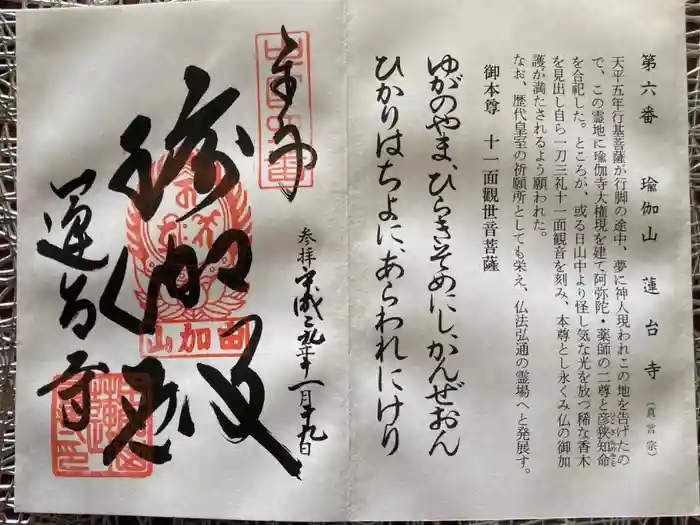 第六番 瑜伽山 蓮台寺 (真言宗)
天平五年行基菩薩が行脚の途中、夢に神人現われこの地を告げたの
で、この霊地に瑜伽寺大権現を建て阿弥陀・薬師の二尊と彦狭知命
を合祀した。ところが、或る日山中より怪し気な光を放つ稀な香木
を見出し自ら一刀三礼十一面観音を刻み、本尊とし永くみ仏の御加
護が満たされるよう願われた。
なお、歴代皇室の祈願所としても栄え、仏法弘通の霊場へと発展す。
御本尊 十一面観世音菩薩
ゆがのやま、ひらきそめにし、かんぜおん
ひかりはちよに、あらわれにけり
参拝平成二九年一月十九日
瑜伽殿
蓮台寺
由加山